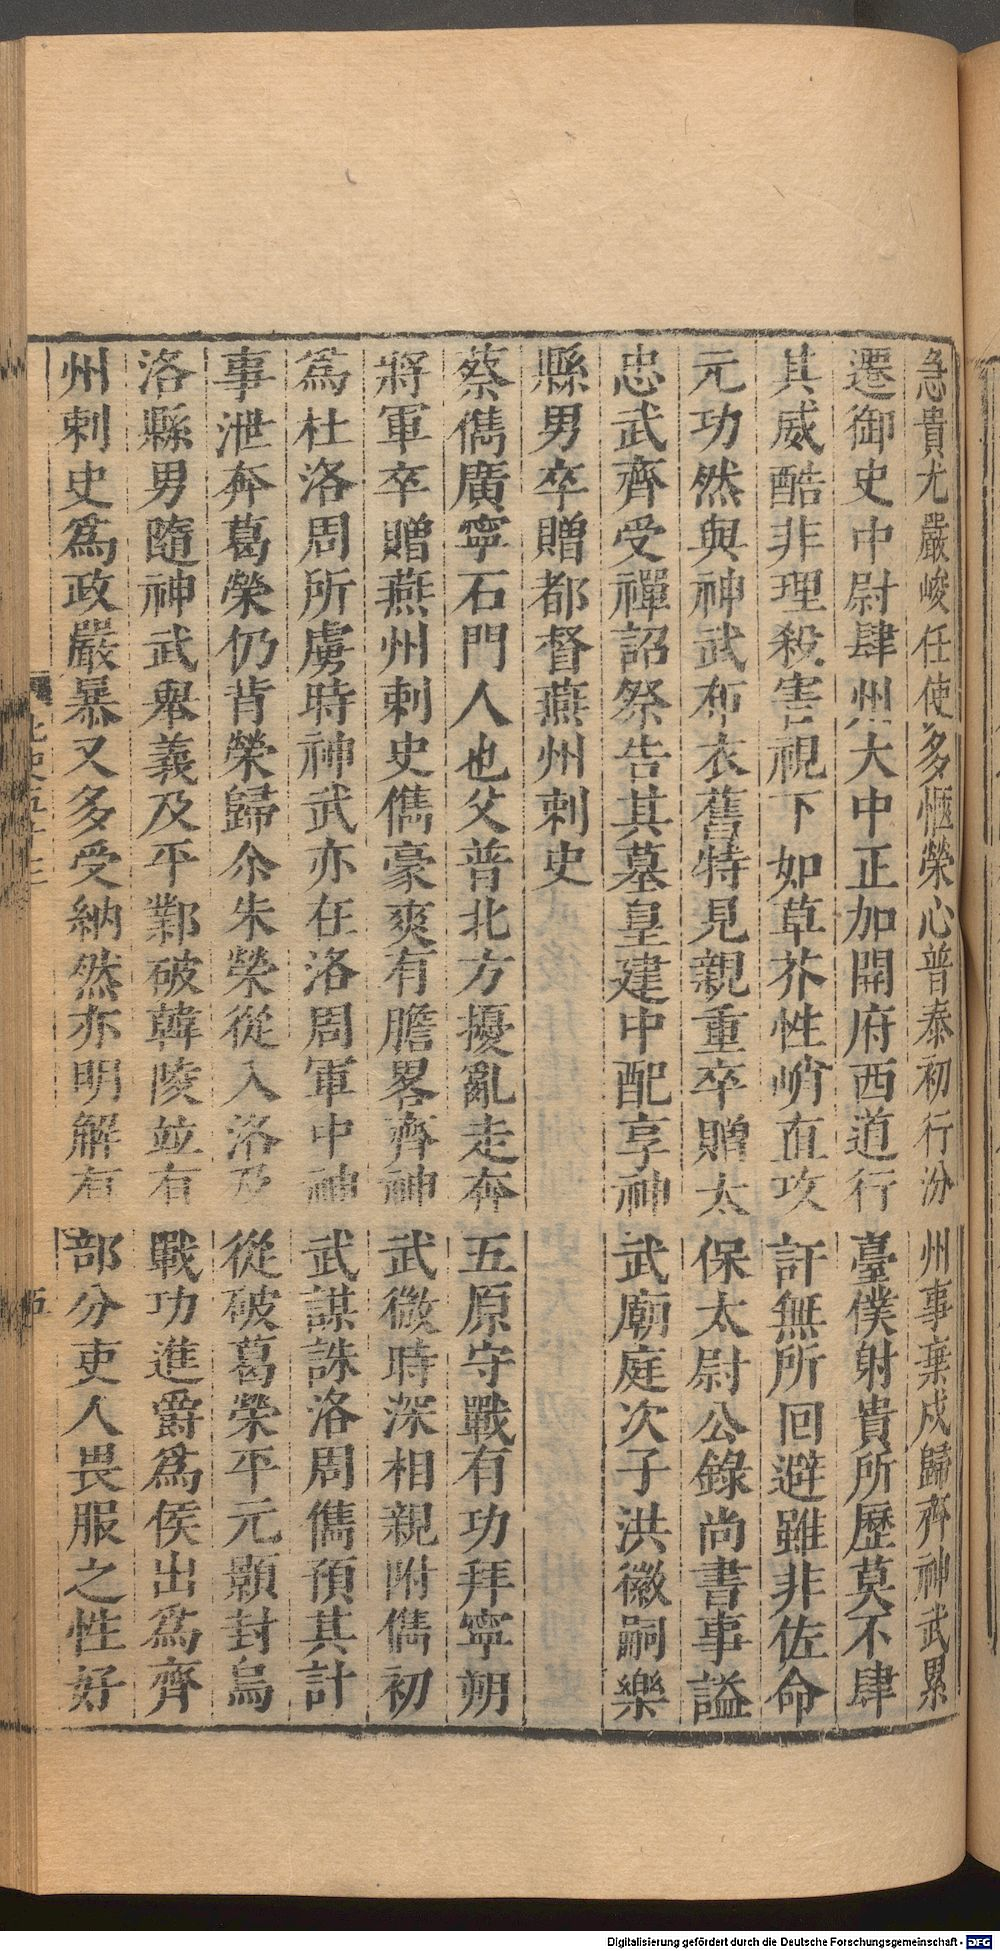 急貴尤嚴峻任使多愜榮心普泰初行汾州事棄戍歸齊神武累
遷御史中尉肆州大中正加開府西道行臺僕射貴所歷莫不肆
其威酷非理殺害視下如草芥性峭直攻訐無所回避雖非佐命
元功然與神武布衣舊特見親重卒贈太保太尉公錄尚書事謚
忠武齊受禪詔祭告其墓皇建中配享神武廟庭次子洪徽嗣樂
縣男卒贈都督燕州刺史
蔡儁廣寧石門人也父普北方擾亂走奔五原守戰有功拜寧朔
將軍卒贈燕州刺史儁豪爽有膽畧齊神武微時深相親附儁初
爲杜洛周所虜時神武亦在洛周軍中神武謀誅洛周儁預其計
事泄奔葛榮仍背榮歸尒朱榮從入洛及從破葛榮平元顥封烏
洛縣男隨神武舉義及平鄴破韓陵竝有戰功進爵爲侯出爲齊
州刺史爲政嚴暴又多受納然亦明解有部分吏人畏服之性好
北史五十三
五
Digitalisierung gefördert durch die Deutsche Forschungsgemeinschaft - DFG